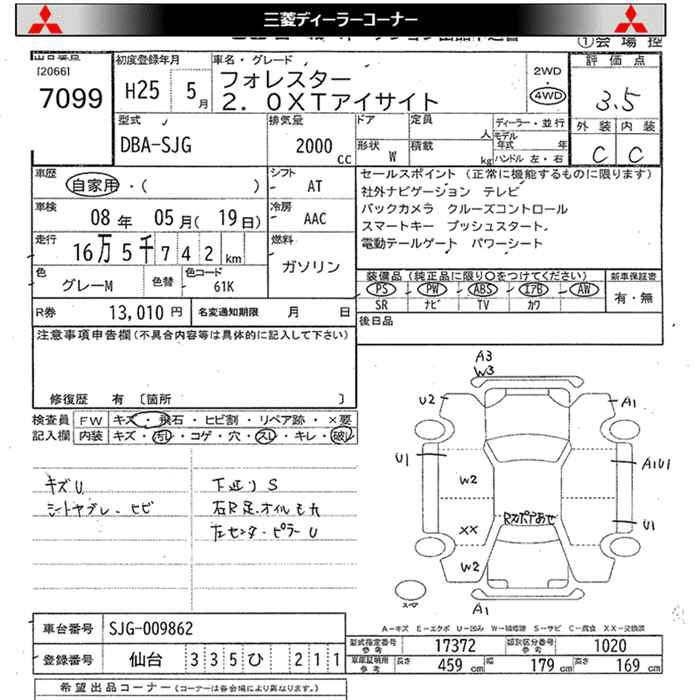 三菱ディーラーコーナー
①会場控
[2066]
7099
初度登録年月
H25 5月
車名・グレード
フォレスター
2.0XTアイサイト
2WD
4WD
評価点
3.5
外装 内装
C C
型式
DBA-SJG
排気量
2000 cc
ドア
定員
人
形状
W
積載
kg
ディーラー・並行
モデル
年式 年
ハンドル 左・右
車歴
自家用・( )
シフト
AT
車検
08年 05月(19日)
冷房
AAC
走行
16万5千742km
燃料
ガソリン
色
グレーM
色替
色コード
61K
R券
13,010円
名変通知期限 月 日
セールスポイント (正常に機能するものに限ります)
社外ナビゲーション テレビ
バックカメラ クルーズコントロール
スマートキー プッシュスタート
電動テールゲート パワーシート
装備品(純正品に限り○をつけてください)
PS PW ABS エアB AW
SR ナビ TV カワ
新車保証書
有・無
後日品
注意事項申告欄(不具合内容等は具体的に記入して下さい)
修復歴 有 〔箇所 〕
検査員
記入欄
FW キズ・飛石・ヒビ割・リペア跡・×要
内装 キズ・汚れ・コゲ・穴・スレ・キレ・破れ
キズU
シートヤブレ・ヒビ
下廻りS
右R足オイルもれ
左センターピラーU
A3
W3
U2
A1
U1
A1U1
W2
U1
XX
W2
A1
スペア
A-キズ E-エクボ U-凹み W-補修跡 S-サビ C-腐食 XX-交換済
車台番号
SJG-009862
登録番号
仙台 335 ひ 211
型式指定番号
17372
類別区分番号
1020
車庫証明用
参考
長さ 459cm
幅 179cm
高さ 169cm
希望出品コーナー(コーナーは各会場により異なります。)